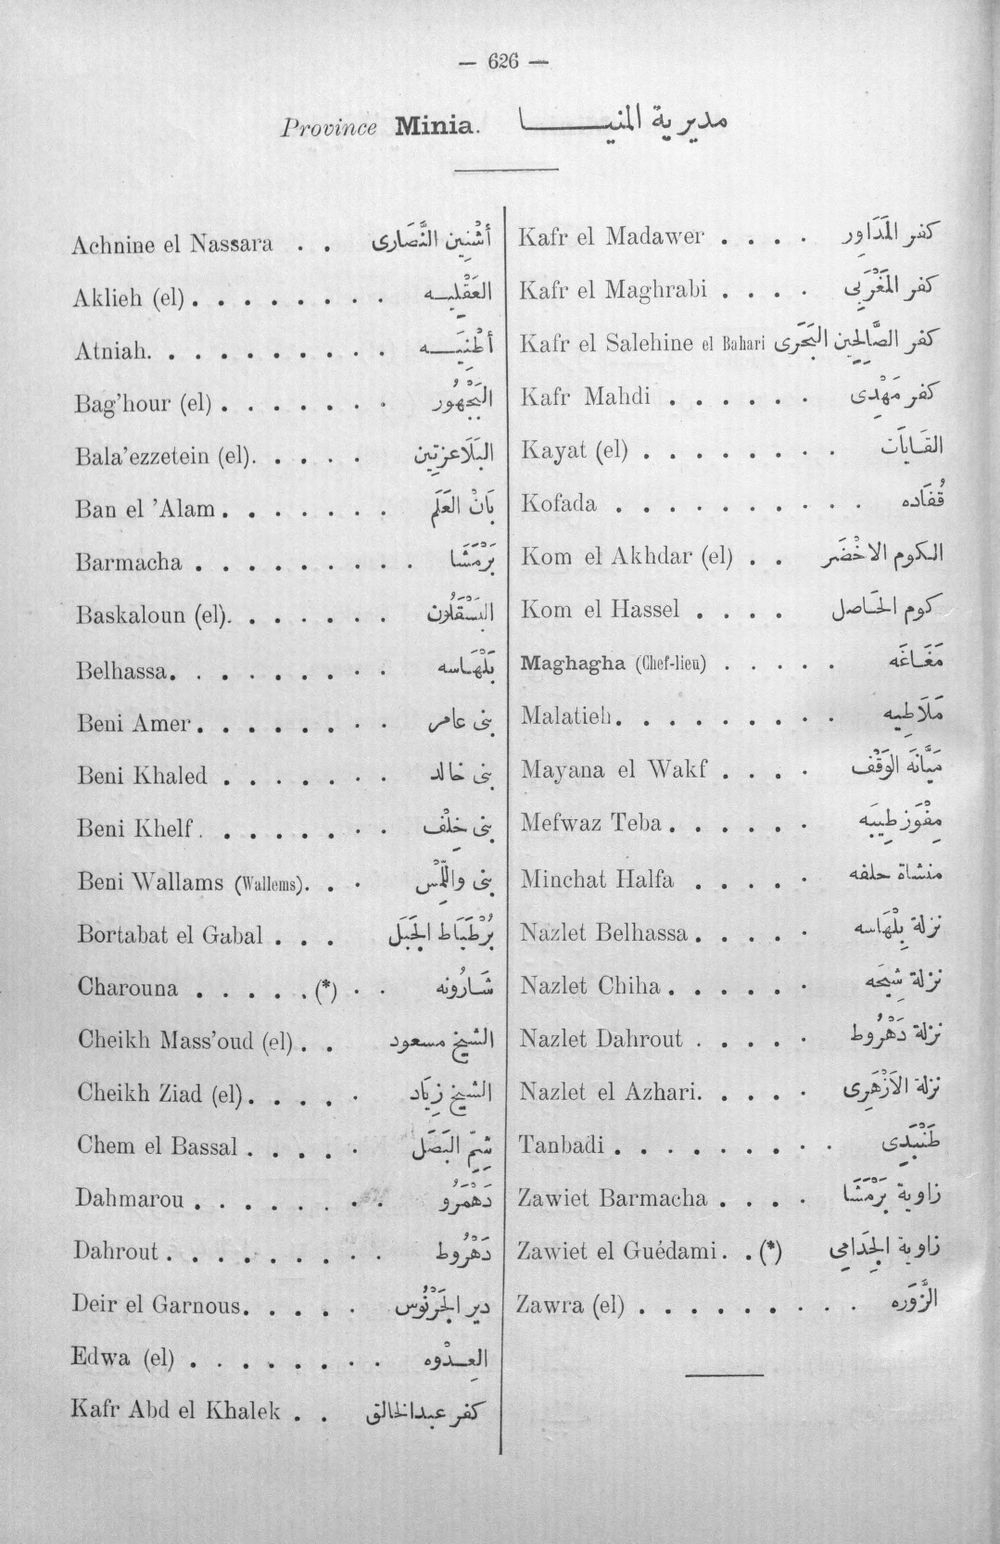 — 626 —
Province Minia. مديرية المنيـــا
Achnine el Nassara . . أَشْنِين النَّصَارى
Aklieh (el) . . . . . . . . العَقْلِيـه
Atniah. . . . . . . . . . أَطْنِيَـه
Bag'hour (el) . . . . . . . البَجْهُور
Bala'ezzetein (el). . . . . البَلَاعزتِين
Ban el 'Alam . . . . . . . بَانْ العَلَم
Barmacha . . . . . . . . . بَرْمَشَا
Baskaloun (el). . . . . . . البَسْقَلُون
Belhassa. . . . . . . . . بَلْهَاسه
Beni Amer . . . . . . . . بنى عامر
Beni Khaled . . . . . . . بنى خالد
Beni Khelf . . . . . . . . بنى خِلْف
Beni Wallams (Wallems). . . بنى واللِّمْس
Bortabat el Gabal . . . بُرْطَبَاط الجَبَل
Charouna . . . . . (*) . . شَارُونه
Cheikh Mass'oud (el) . . الشيخ مسعود
Cheikh Ziad (el) . . . . . الشيخ زِيَاد
Chem el Bassal . . . . . شِمّ البَصَل
Dahmarou . . . . . . . . دَهْمَرُو
Dahrout . . . . . . . . . دَهْرُوط
Deir el Garnous. . . . . دير الجَرْنُوس
Edwa (el) . . . . . . . . العِـدْوه
Kafr Abd el Khalek . . كفر عبدالخالق
Kafr el Madawer . . . . كفر المَدَاوِر
Kafr el Maghrabi . . . . كفر المَغْرَبِى
Kafr el Salehine el Bahari كفر الصَّالِحِين البَحَرى
Kafr Mahdi . . . . . . كفر مَهْدِى
Kayat (el) . . . . . . . . القَـايَات
Kofada . . . . . . . . . . قُفَاده
Kom el Akhdar (el) . . الكوم الاخْضَر
Kom el Hassel . . . . كوم الحَاصل
Maghagha (Chef-lieu) . . . . . مَغَاغَه
Malatieh. . . . . . . . . مَلَاطِيه
Mayana el Wakf . . . . مَيَّانَه الوَقْف
Mefwaz Teba . . . . . . مِفْوَز طِيبَه
Minchat Halfa . . . . . منشاة حلفه
Nazlet Belhassa . . . . . نزلة بِلْهَاسه
Nazlet Chiha . . . . . . نزلة شِيحَه
Nazlet Dahrout . . . . . نزلة دَهْرُوط
Nazlet el Azhari. . . . . نزلة الاَزْهَرِى
Tanbadi . . . . . . . . . طَنْبَدِى
Zawiet Barmacha . . . . زاوية بَرْمَشَا
Zawiet el Guédami. . (*) زاوية الجِدَامِى
Zawra (el) . . . . . . . . . الزَّوَره